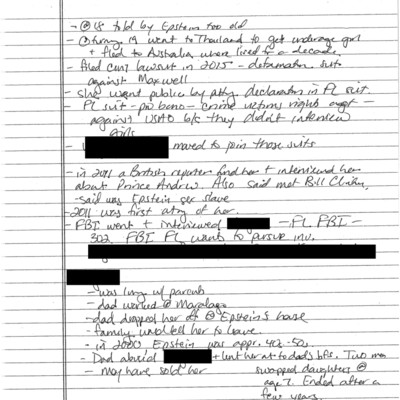 - @ 18 told by Epstein too old
- @ turning 19 went to Thailand to get underage girl
+ fled to Australia where lived for a decade.
- filed civil lawsuit in 2015 - defamation suit
against Maxwell
- she went public by pttng declaration in PL suit.
- PL suit - pro bono - crime victims rights
against USAO b/c they didn't interview
girls
- moved to join those suits
- in 2011 a British reporter find her + interviewed her
about Prince Andrew. Also said met Bill Clinton,
- said was Epstein sex slave
- 2011 was first of her.
- FBI went + interviewed - FL FBI -
302. FBI FL wants to pursue inv.
- was living w/ parents
- dad worked @ Maralago
- dad dropped her off @ Epstein's house
- family would tell her to leave.
- in 2000 Epstein was appr. 42-50.
- Dad abused + lent her out to dad's bfs. Two men
- may have sold her swapped daughters @
age 7. Ended after a
few years.